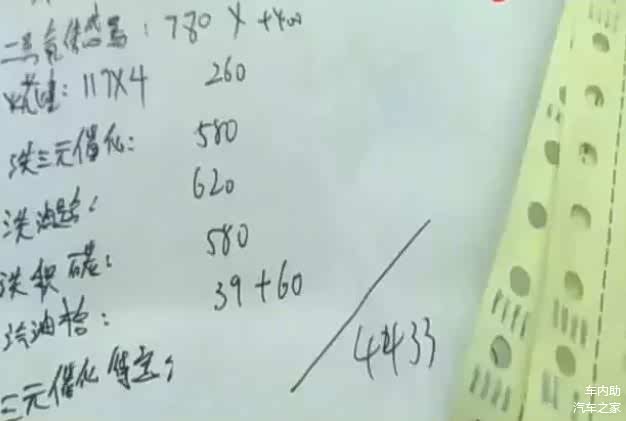 二号氧传感器：780 X +400
火花塞：117X4 260
洗三元催化： 580
洗油路： 620
洗积碳： 580
汽油格： 39+60
三元催化待定；
4433
车内助
汽车之家